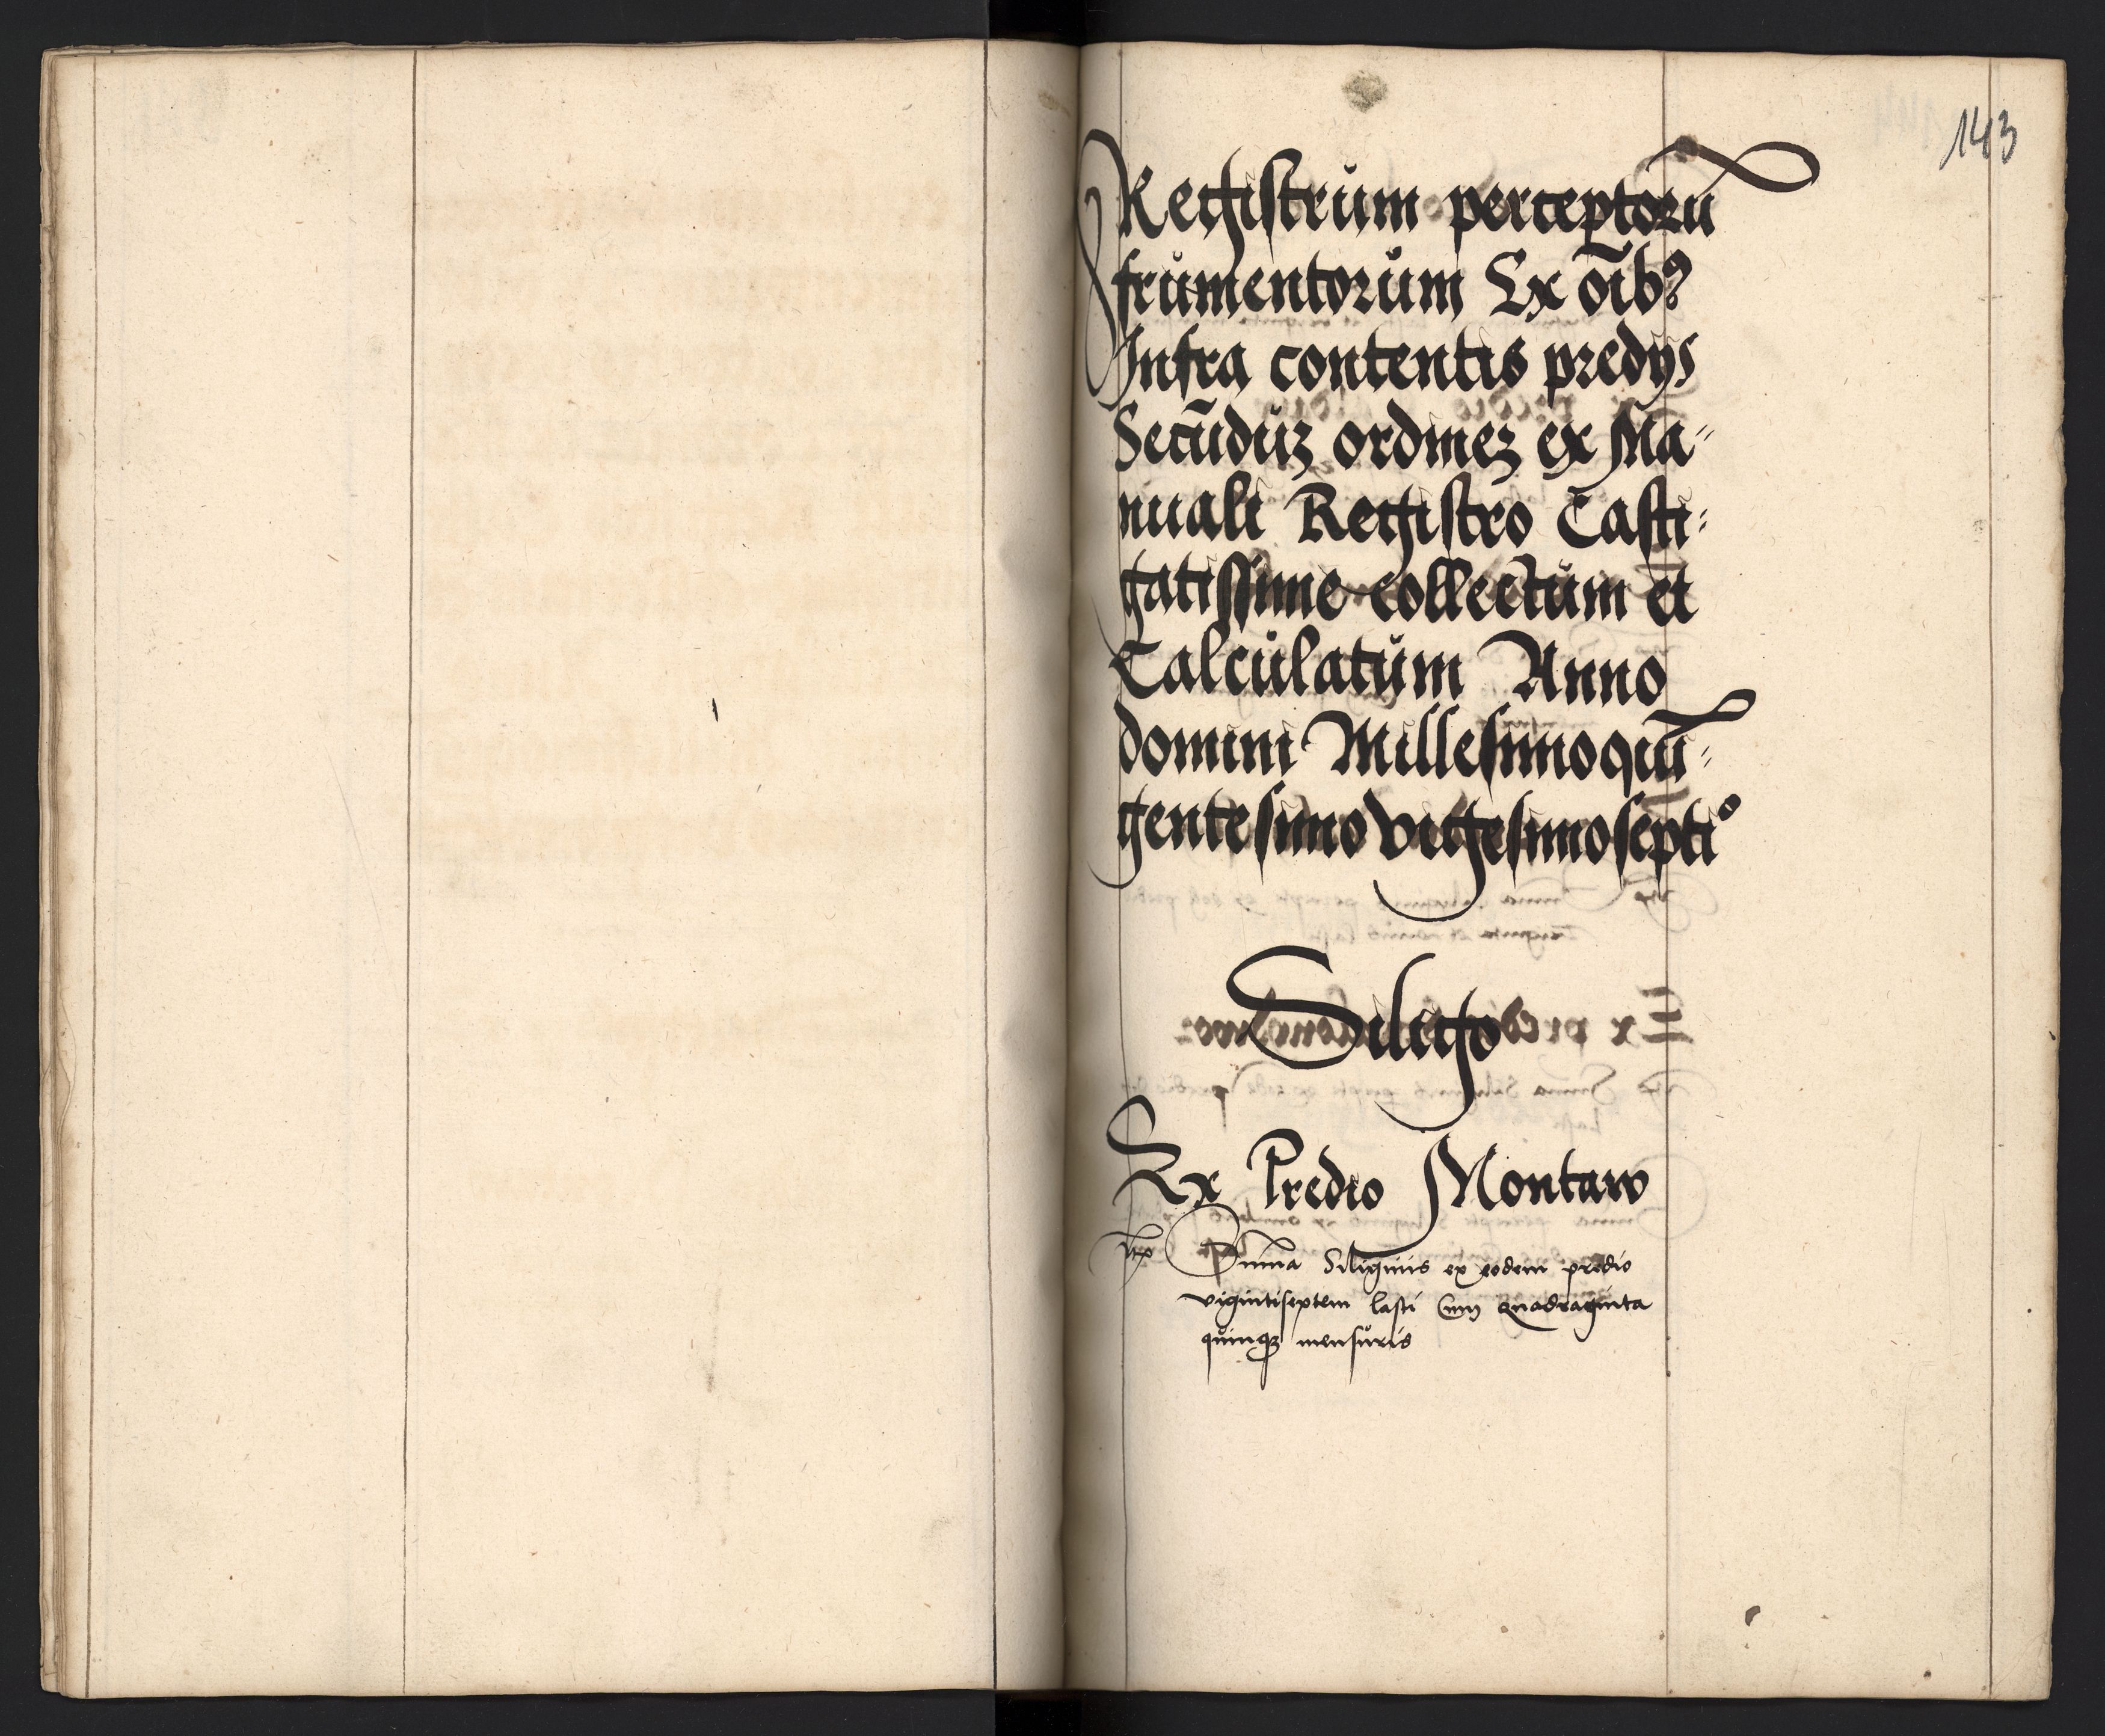 143
Registrum perceptorū
frumentorum Ex oīb9
Infra contentis predijs
Secūduz ordinez ex Ma=
nuali Registro Casti=
gatissime collectum et
Calculatum Anno
domini Millesimoquī=
gentesimo vigesimosepti⁰
Siligo
Ex Predio Montaw
Suma Siliginis ex eodem predio
vigintiseptem lasti Cum quadraginta
quinqȝ mensuris